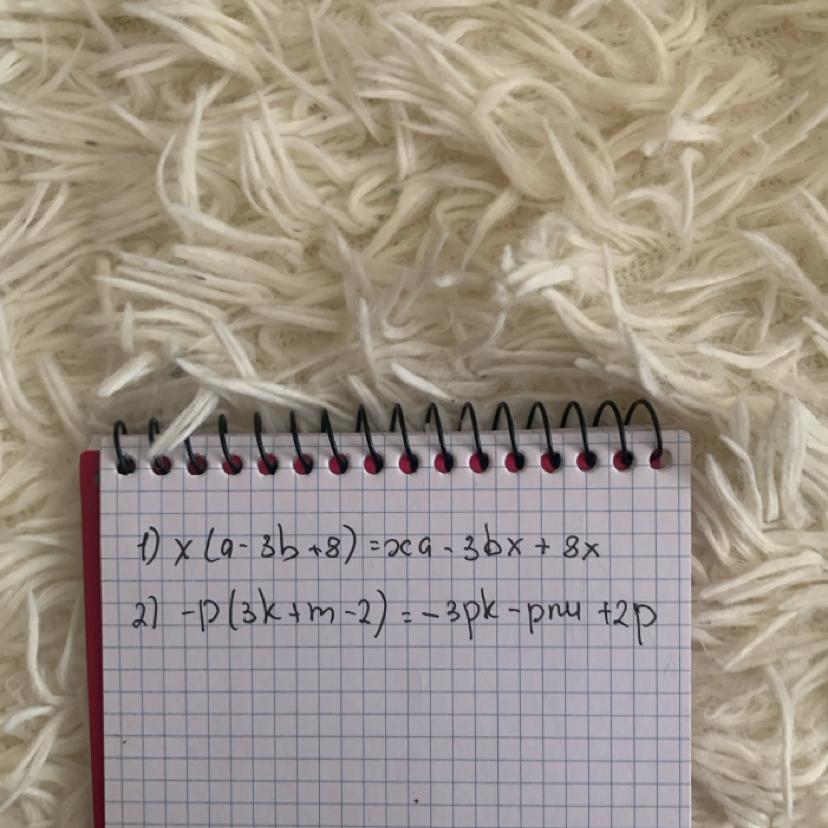 1) x(a-3b+8)=xa-3bx+8x
2) -p(3k+m-2)=-3pk-pm+2p